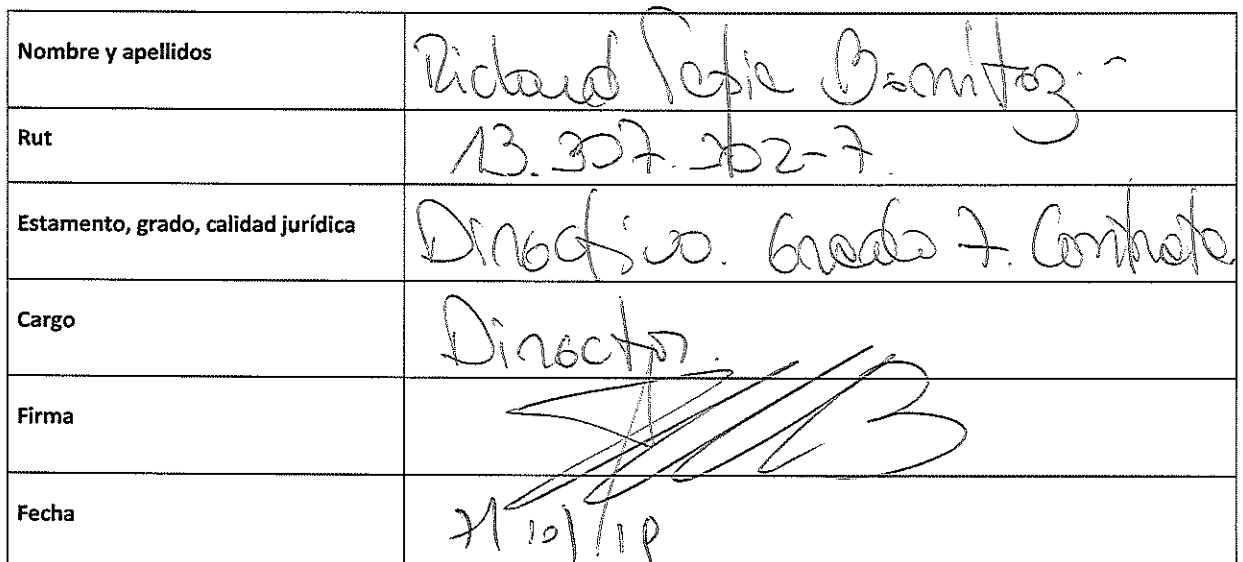 Nombre y apellidos Richard Tapia
Rut 13.307.302-7
Estamento, grado, calidad jurídica Directivo. Grado 7. Contrata
Cargo Director.
Firma
Fecha